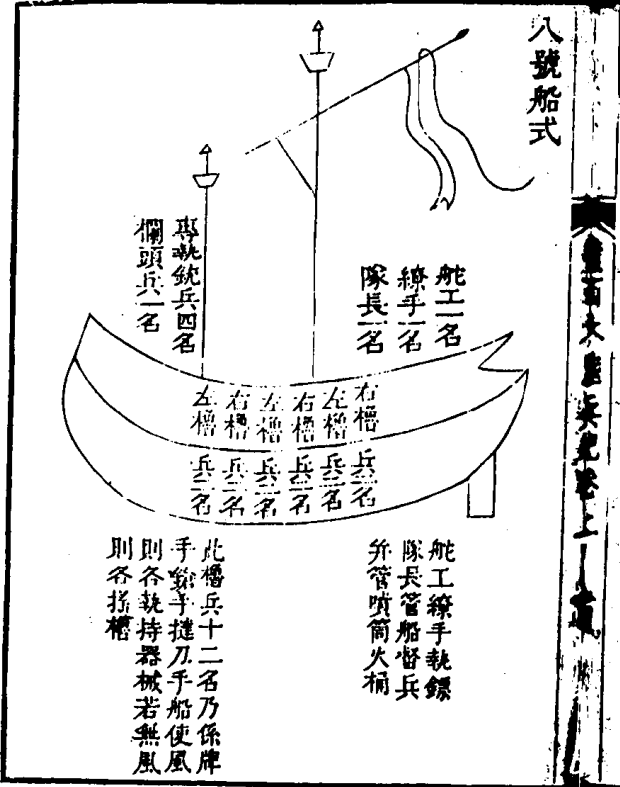 八號船式
舵工一名
繚手一名
隊長一名
專執銃兵四名
欄頭兵一名
右櫓 兵二名
左櫓 兵二名
右櫓 兵二名
左櫓 兵二名
右櫓 兵二名
左櫓 兵二名
舵工繚手執鏢
隊長管船督兵
并管噴筒火桶
此櫓兵十二名乃係牌
手鏢手撻刀手船使風
則各執持器械若無風
則各搖櫓